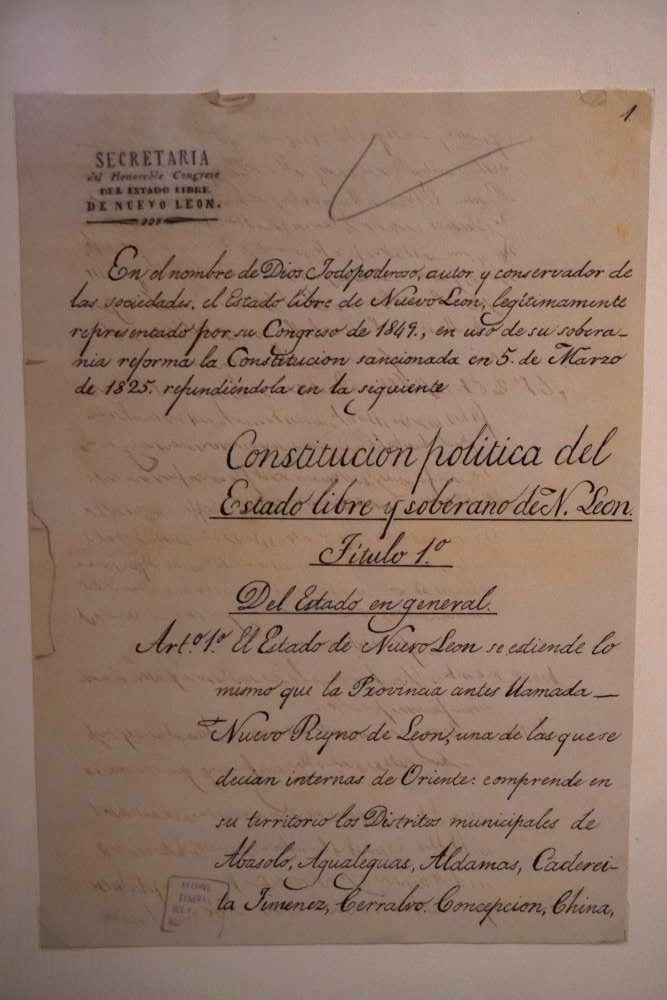 1
SECRETARIA
del Honorable Congreso
DEL ESTADO LIBRE
DE NUEVO LEON.
En el nombre de Dios Todopoderoso, autor y conservador de
las sociedades, el Estado libre de Nuevo Leon, legítimamente
representado por su Congreso de 1849., en uso de su sobera-
nia reforma la Constitucion sancionada en 5. de Marzo
de 1825. refundiéndola en la siguiente
Constitucion politica del
Estado libre y soberano de N. Leon.
Título 1.º
Del Estado en general.
Art.º 1.º El Estado de Nuevo Leon se estiende lo
mismo que la Provincia antes llamada
Nuevo Reyno de Leon, una de las que se
decian internas de Oriente: comprende en
su territorio los Distritos municipales de
Abasolo, Agualeguas, Aldamas, Caderei-
ta Jimenez, Cerralvo. Concepcion, China,